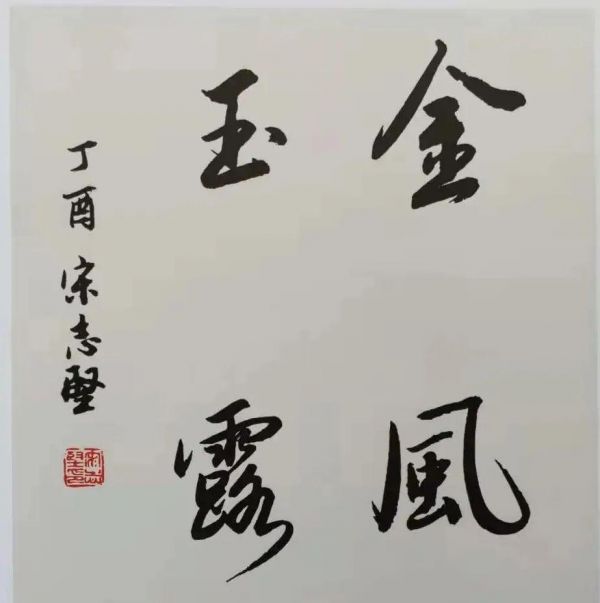 金風
玉露
丁酉 宋志堅